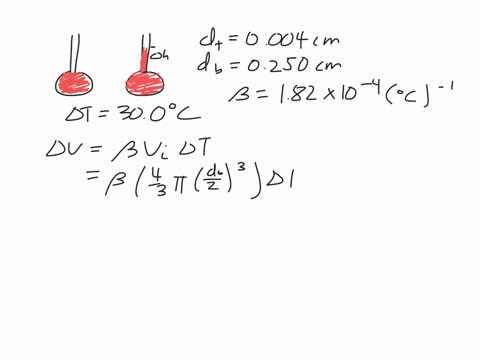 Δh
d_t = 0.004 cm
d_b = 0.250 cm
β = 1.82 × 10⁻⁴ (°C)⁻¹
ΔT = 30.0°C
ΔV = β V_i ΔT
= β (4/3 π (d_b/2)³) Δ